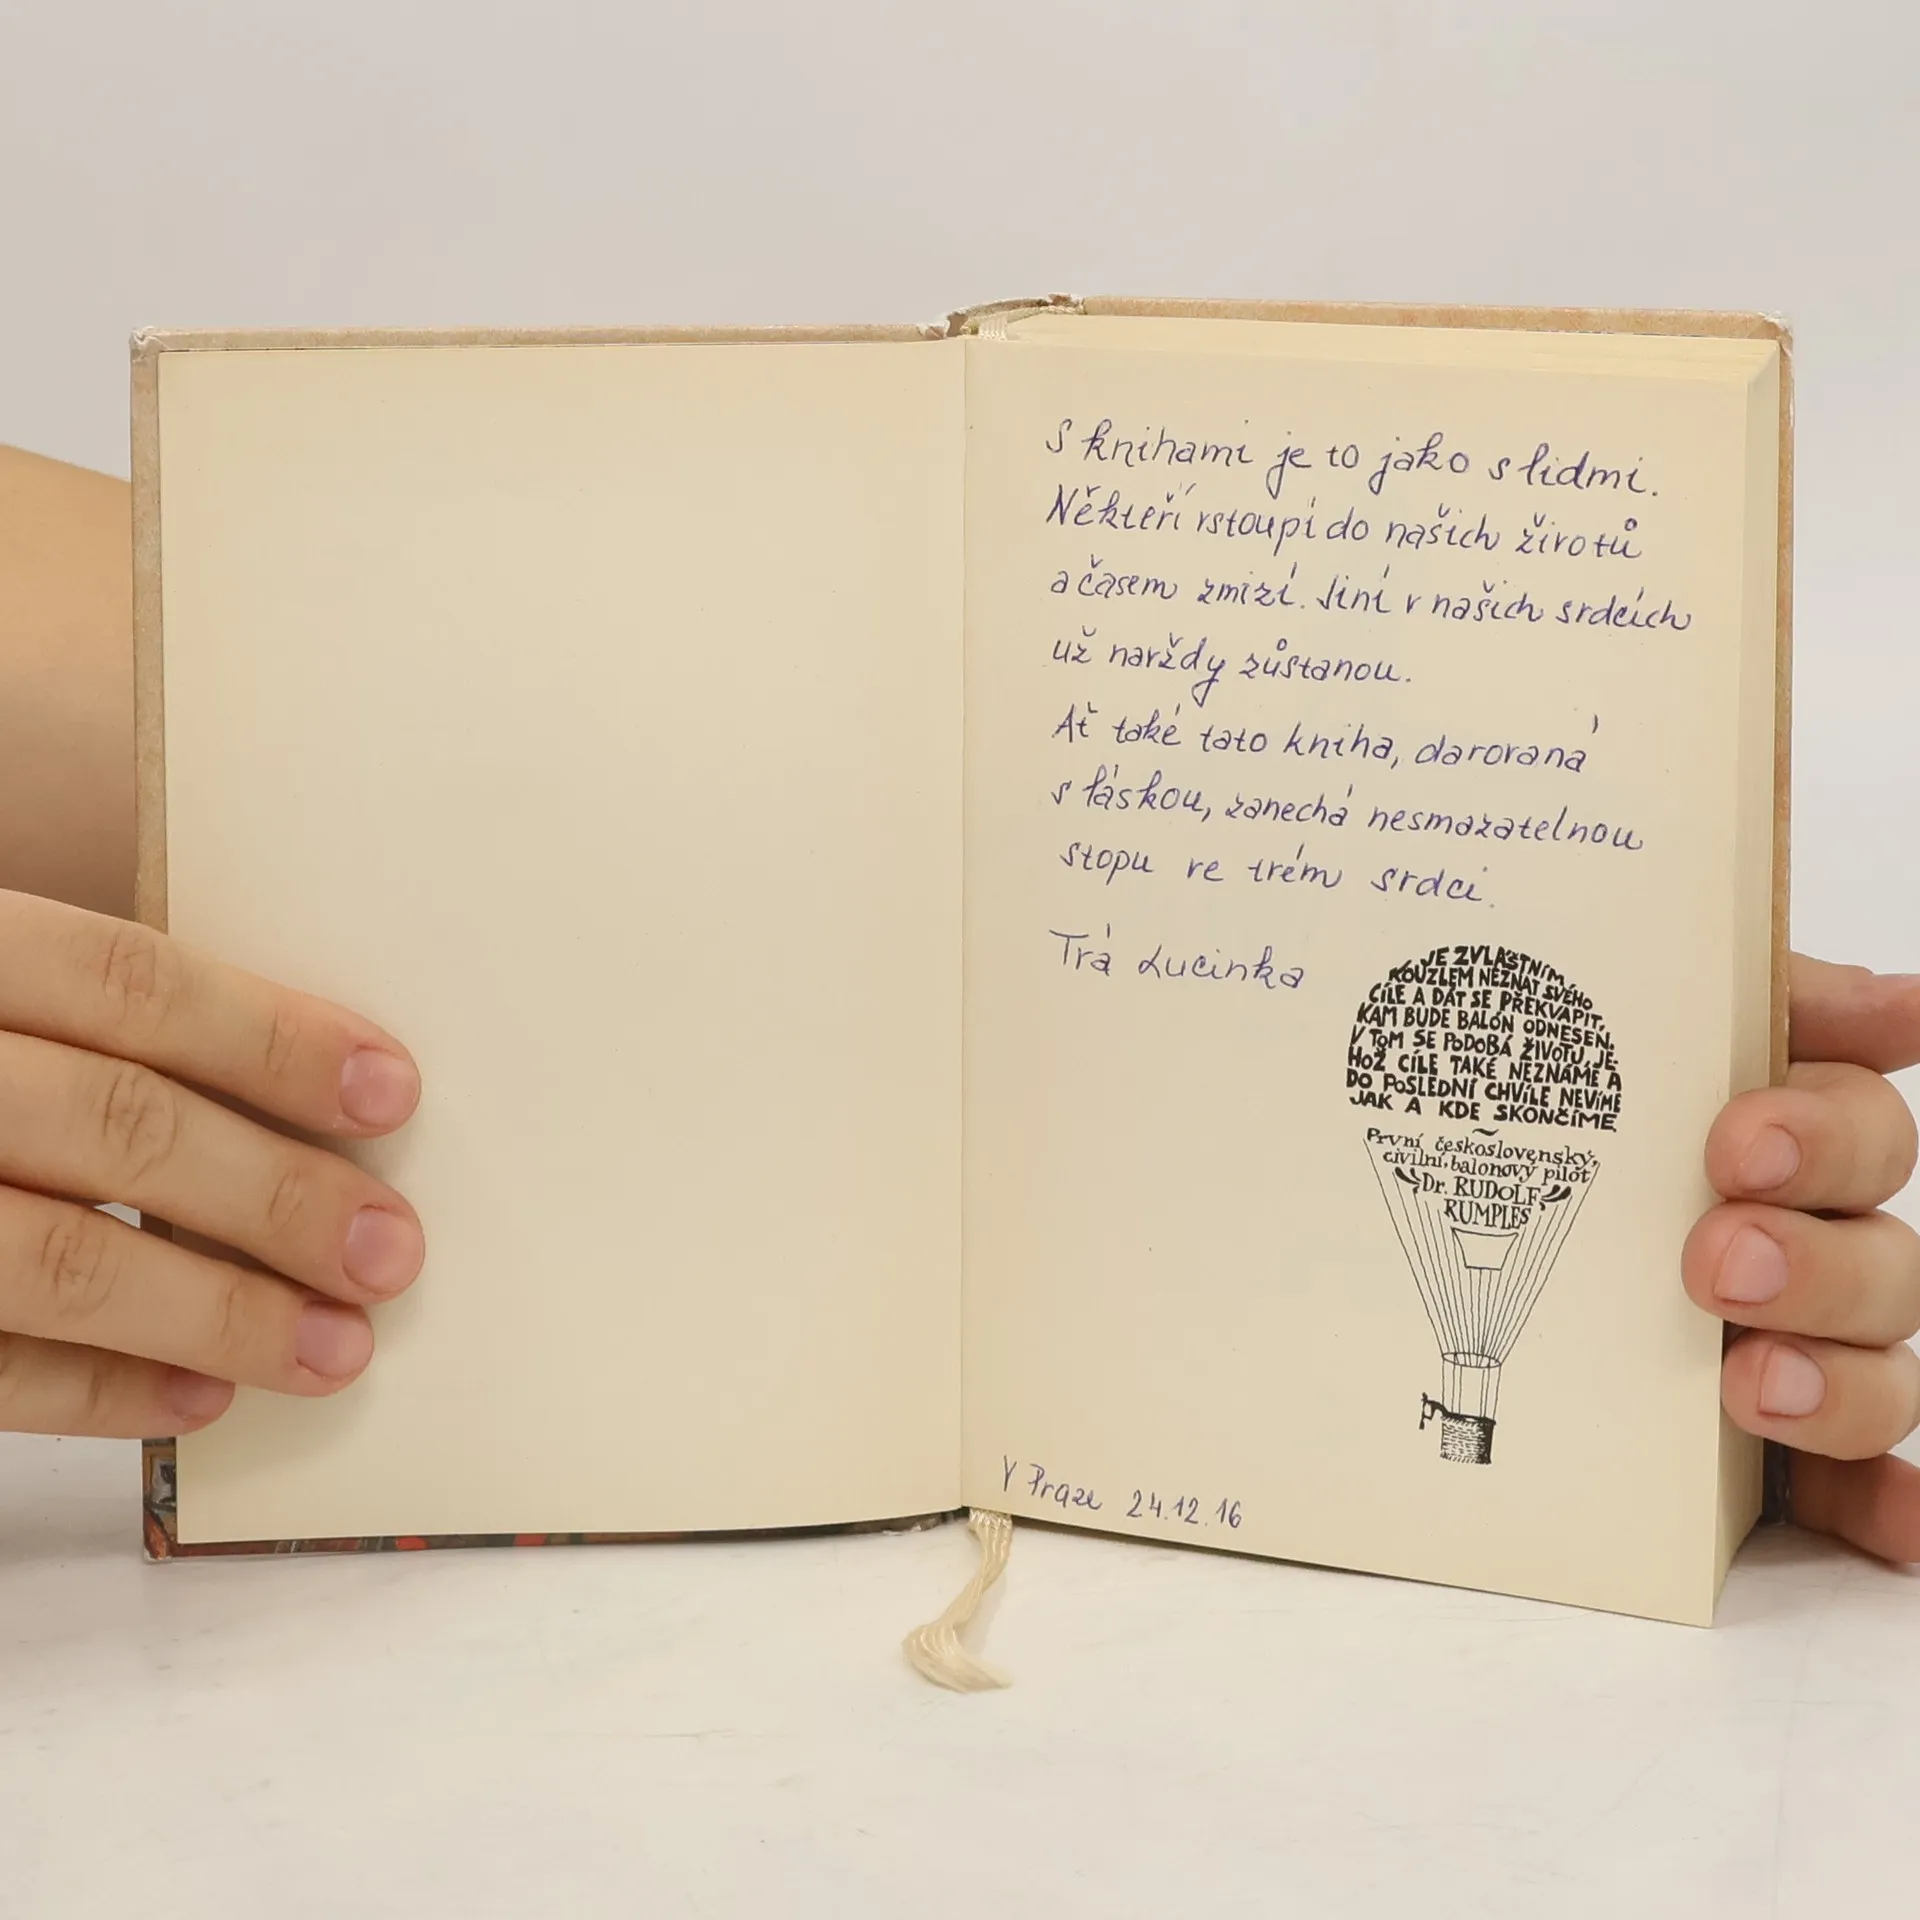 S knihami je to jako s lidmi.
Někteří vstoupí do našich životů
a časem zmizí. Jiní v našich srdcích
už navždy zůstanou.
Ať také tato kniha, darovaná
s láskou, zanechá nesmazatelnou
stopu ve tvém srdci.
Tvá Lucinka
JE ZVLÁŠTNÍM
KOUZLEM NEZNAT SVÉHO
CÍLE A DÁT SE PŘEKVAPIT,
KAM BUDE BALÓN ODNESEN.
V TOM SE PODOBÁ ŽIVOTU, JE-
HOŽ CÍLE TAKÉ NEZNÁME A
DO POSLEDNÍ CHVÍLE NEVÍME
JAK A KDE SKONČÍME
První československý,
civilní, balonový pilot
Dr. RUDOLF
RUMPLES
V Praze 24.12.16